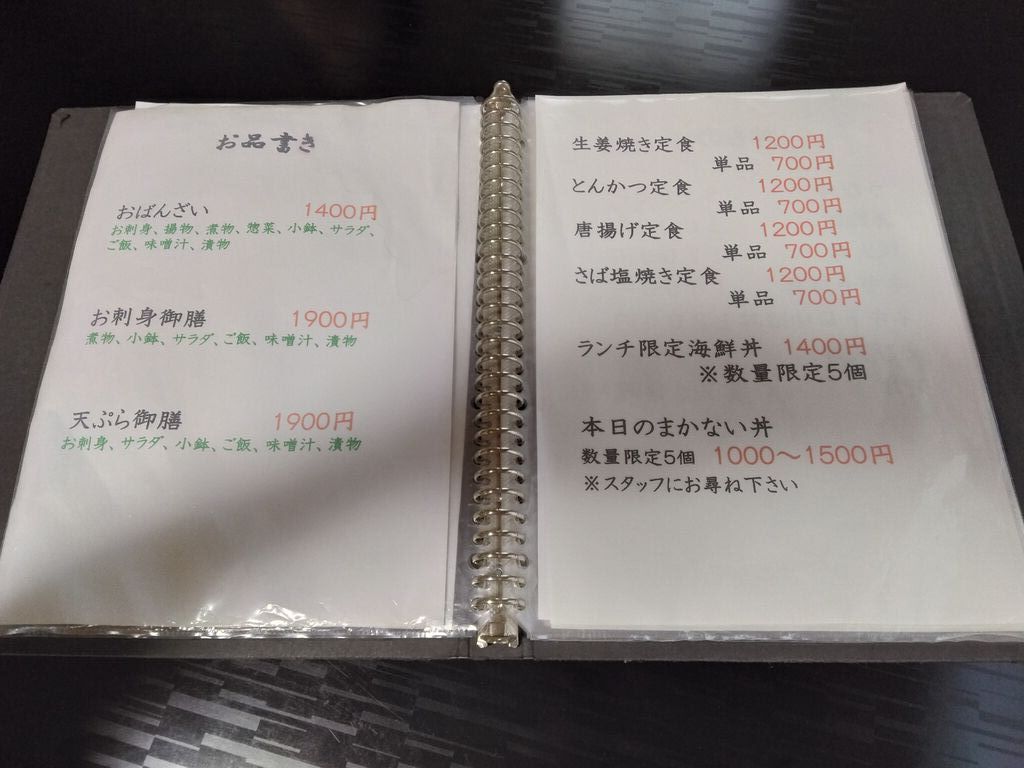 お品書き
おばんざい 1400円
お刺身、揚物、煮物、惣菜、小鉢、サラダ、
ご飯、味噌汁、漬物
お刺身御膳 1900円
煮物、小鉢、サラダ、ご飯、味噌汁、漬物
天ぷら御膳 1900円
お刺身、サラダ、小鉢、ご飯、味噌汁、漬物
生姜焼き定食 1200円
単品 700円
とんかつ定食 1200円
単品 700円
唐揚げ定食 1200円
単品 700円
さば塩焼き定食 1200円
単品 700円
ランチ限定海鮮丼 1400円
※数量限定5個
本日のまかない丼
数量限定5個 1000～1500円
※スタッフにお尋ね下さい